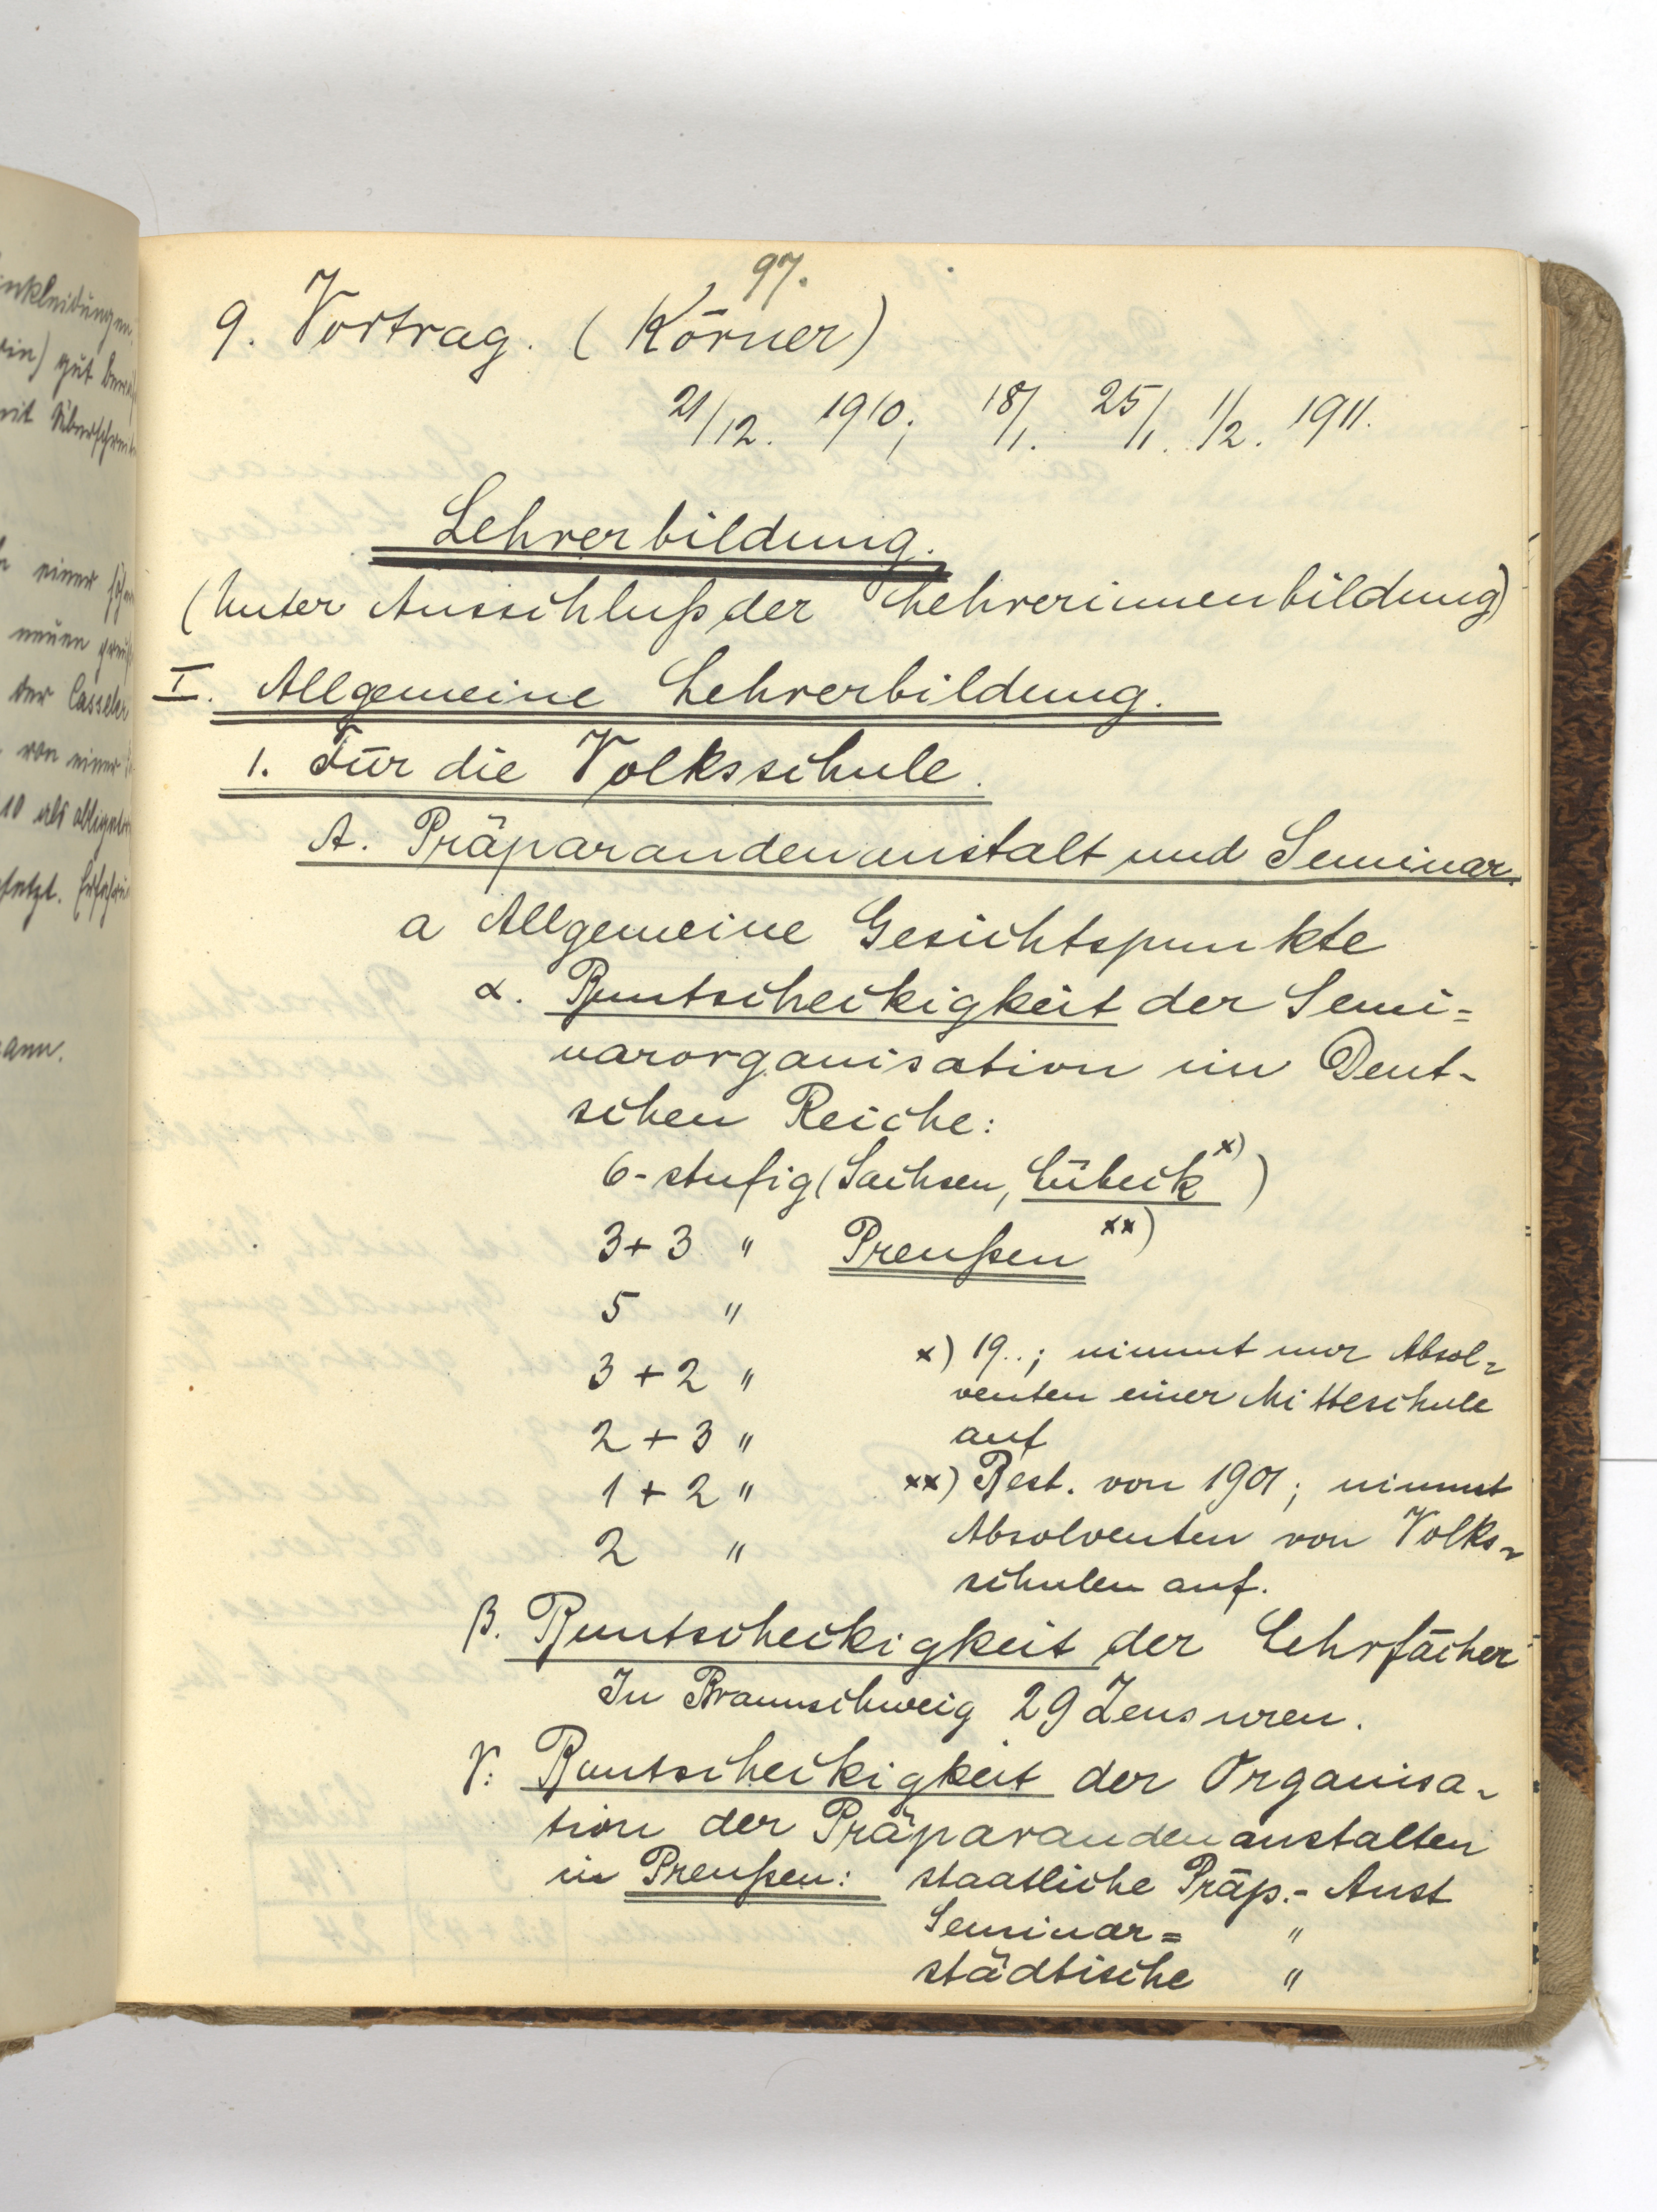 nkleidungen
rin) gut
mit Überschrei
einer
neuen
der Casseler
von einer
10 als obligator
setzt.
ann.
97.
9. Vortrag. (Körner)
21/12. 1910; 18/1. 25/1. 1/2. 1911.
Lehrerbildung.
(Unter Ausschluß der Lehrerinnenbildung)
I. Allgemeine Lehrerbildung.
1. Für die Volksschule.
A. Präparandenanstalt und Seminar.
a Allgemeine Gesichtspunkte
α. Buntscheckigkeit der Semi=
narorganisation im Deut-
schen Reiche:
6-stufig (Sachsen, Lübeck x))
3+3 " Preußen xx)
5 "
3+2 "
2+3 "
1+2 "
2 "
x) 19..; nimmt nur Absol=
venten einer Mittelschule
auf
xx) Best. von 1901; nimmt
Absolventen von Volks=
schulen auf.
β. Buntscheckigkeit der Lehrfächer
In Braunschweig 29 Zensuren.
γ: Buntscheckigkeit der Organisa-
tion der Präparandenanstalten
in Preußen: staatliche Präp.-Anst
Seminar= "
städtische "